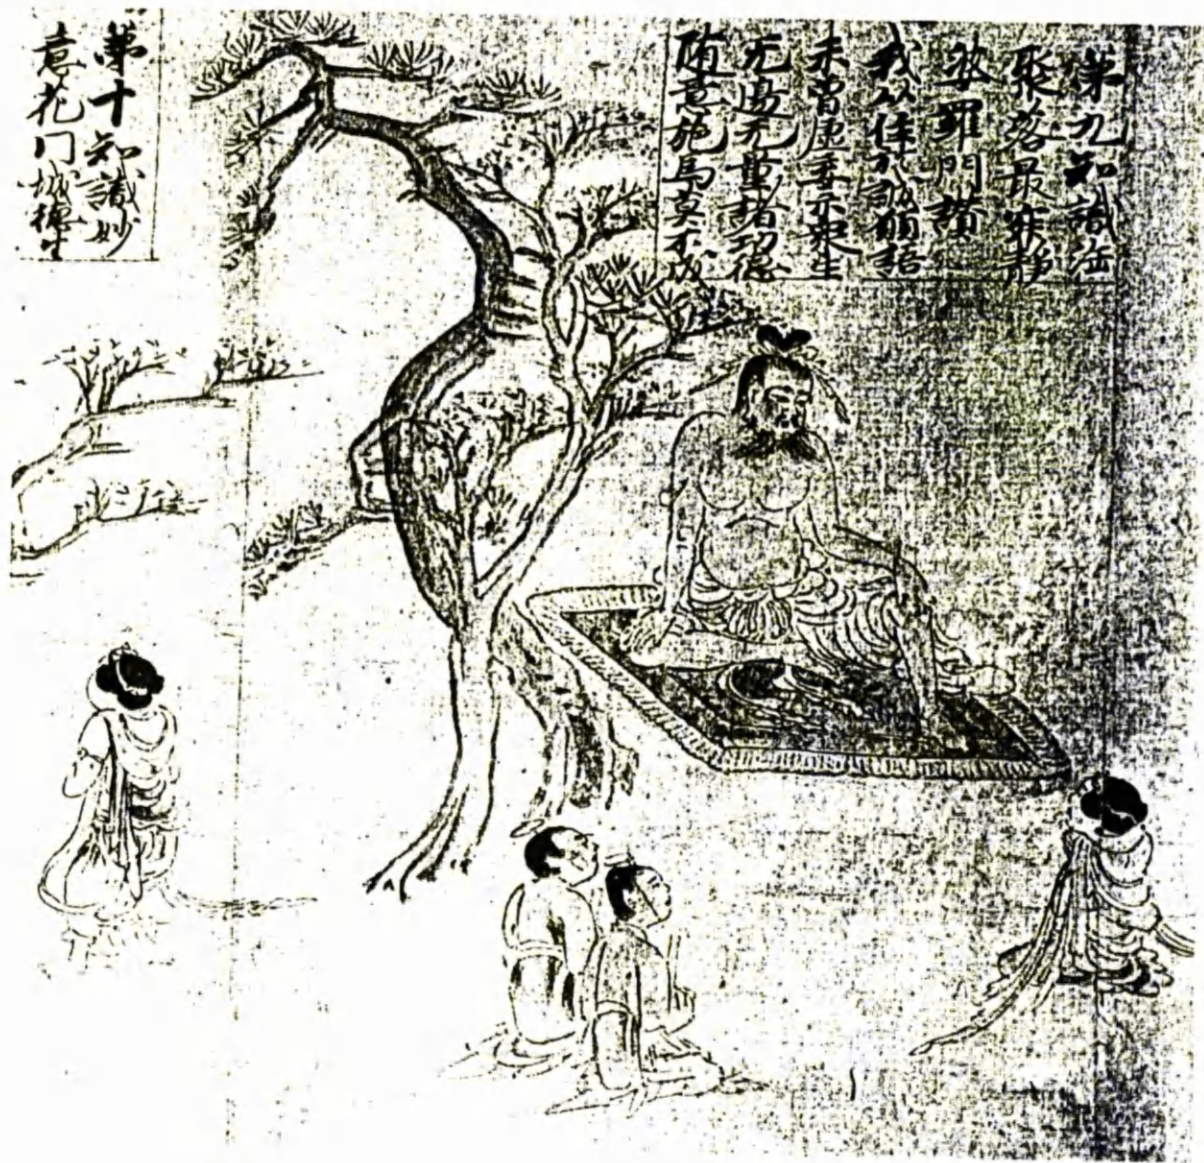 第九知識法
聚落最寂静
婆羅門讃
我以住於誠願語
未曽虚妄示衆生
无邊无量諸功德
随意施爲莫不成
第十知識妙
意花门城德生